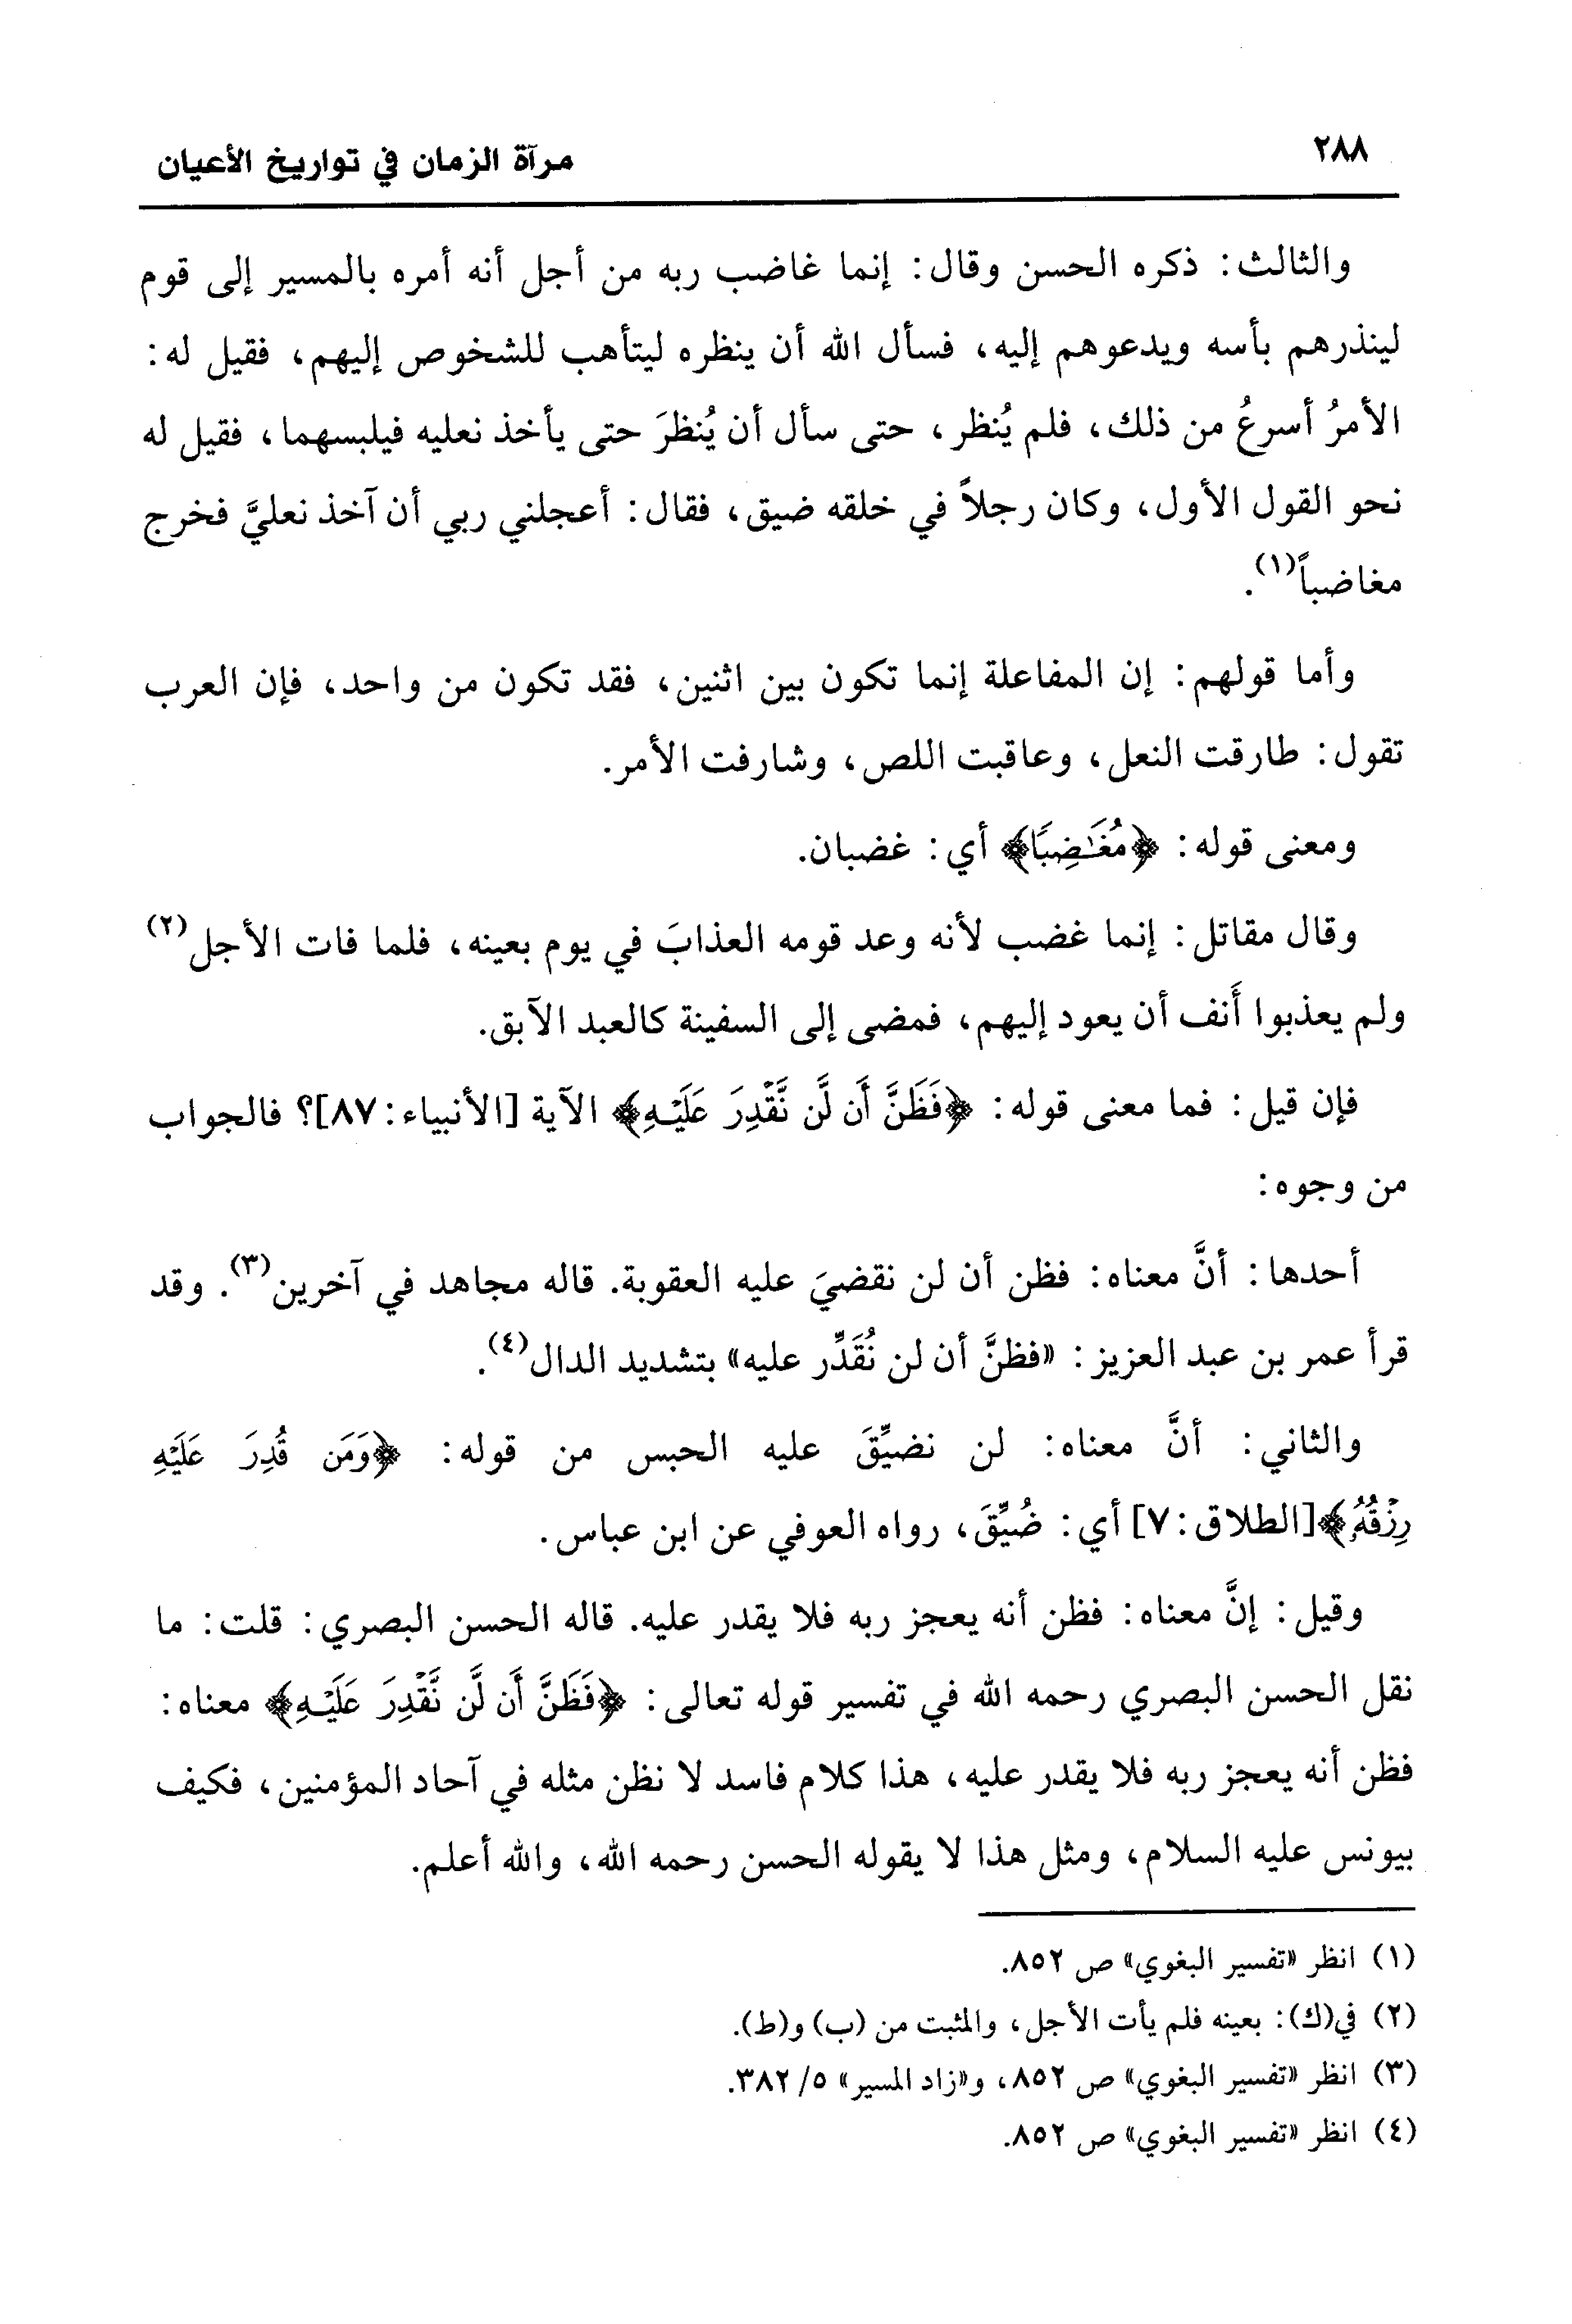 ٢٨٨
مرآة الزمان في تواريخ الأعيان
والثالث: ذكره الحسن وقال: إنما غاضب ربه من أجل أنه أمره بالمسير إلى قوم
لينذرهم بأسه ويدعوهم إليه، فسأل الله أن ينظره ليتأهب للشخوص إليهم، فقيل له:
الأمرُ أسرعُ من ذلك، فلم يُنظر، حتى سأل أن يُنظرَ حتى يأخذ نعليه فيلبسهما، فقيل له
نحو القول الأول، وكان رجلاً في خلقه ضيق، فقال: أعجلني ربي أن آخذ نعليَّ فخرج
مغاضباً(١).
وأما قولهم: إن المفاعلة إنما تكون بين اثنين، فقد تكون من واحد، فإن العرب
تقول: طارقت النعل، وعاقبت اللص، وشارفت الأمر.
ومعنى قوله: ﴿مُغَٰضِبًا﴾ أي: غضبان.
وقال مقاتل: إنما غضب لأنه وعد قومه العذابَ في يوم بعينه، فلما فات الأجل(٢)
ولم يعذبوا أَنف أن يعود إليهم، فمضى إلى السفينة كالعبد الآبق.
فإن قيل: فما معنى قوله: ﴿فَظَنَّ أَن لَّن نَّقْدِرَ عَلَيْهِ﴾ الآية [الأنبياء: ٨٧]؟ فالجواب
من وجوه:
أحدها: أنَّ معناه: فظن أن لن نقضيَ عليه العقوبة. قاله مجاهد في آخرين(٣). وقد
قرأ عمر بن عبد العزيز: «فظنَّ أن لن نُقَدِّر عليه» بتشديد الدال(٤).
والثاني: أنَّ معناه: لن نضيِّقَ عليه الحبس من قوله: ﴿وَمَن قُدِرَ عَلَيْهِ
رِزْقُهُۥ﴾[الطلاق: ٧] أي: ضُيِّقَ، رواه العوفي عن ابن عباس.
وقيل: إنَّ معناه: فظن أنه يعجز ربه فلا يقدر عليه. قاله الحسن البصري: قلت: ما
نقل الحسن البصري رحمه الله في تفسير قوله تعالى: ﴿فَظَنَّ أَن لَّن نَّقْدِرَ عَلَيْهِ﴾ معناه:
فظن أنه يعجز ربه فلا يقدر عليه، هذا كلام فاسد لا نظن مثله في آحاد المؤمنين، فكيف
بيونس عليه السلام، ومثل هذا لا يقوله الحسن رحمه الله، والله أعلم.
(١) انظر «تفسير البغوي» ص ٨٥٢.
(٢) في(ك): بعينه فلم يأت الأجل، والمثبت من (ب) و(ط).
(٣) انظر «تفسير البغوي» ص ٨٥٢، و«زاد المسير» ٥/ ٣٨٢.
(٤) انظر «تفسير البغوي» ص ٨٥٢.